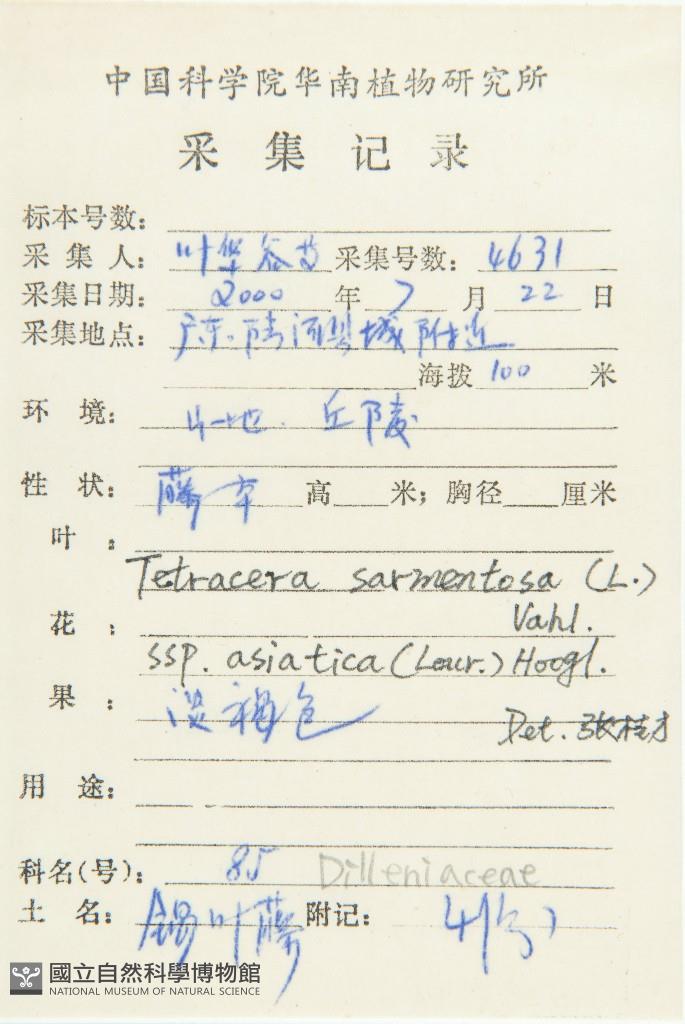 中国科学院华南植物研究所
采集记录
标本号数:
采集人: 叶华谷等 采集号数: 4631
采集日期: 2000 年 7 月 22 日
采集地点: 广东.陆河县城附近
海拨 100 米
环境: 山地. 丘陵
性状: 藤本 高 米; 胸径 厘米
叶:
Tetracera sarmentosa (L.)
Vahl.
花:
ssp. asiatica (Lour.) Hoogl.
果: 淡褐色
Det. 张桂才
用途:
科名(号): 85 Dilleniaceae
土名: 锡叶藤 附记: 4份
國立自然科學博物館
NATIONAL MUSEUM OF NATURAL SCIENCE